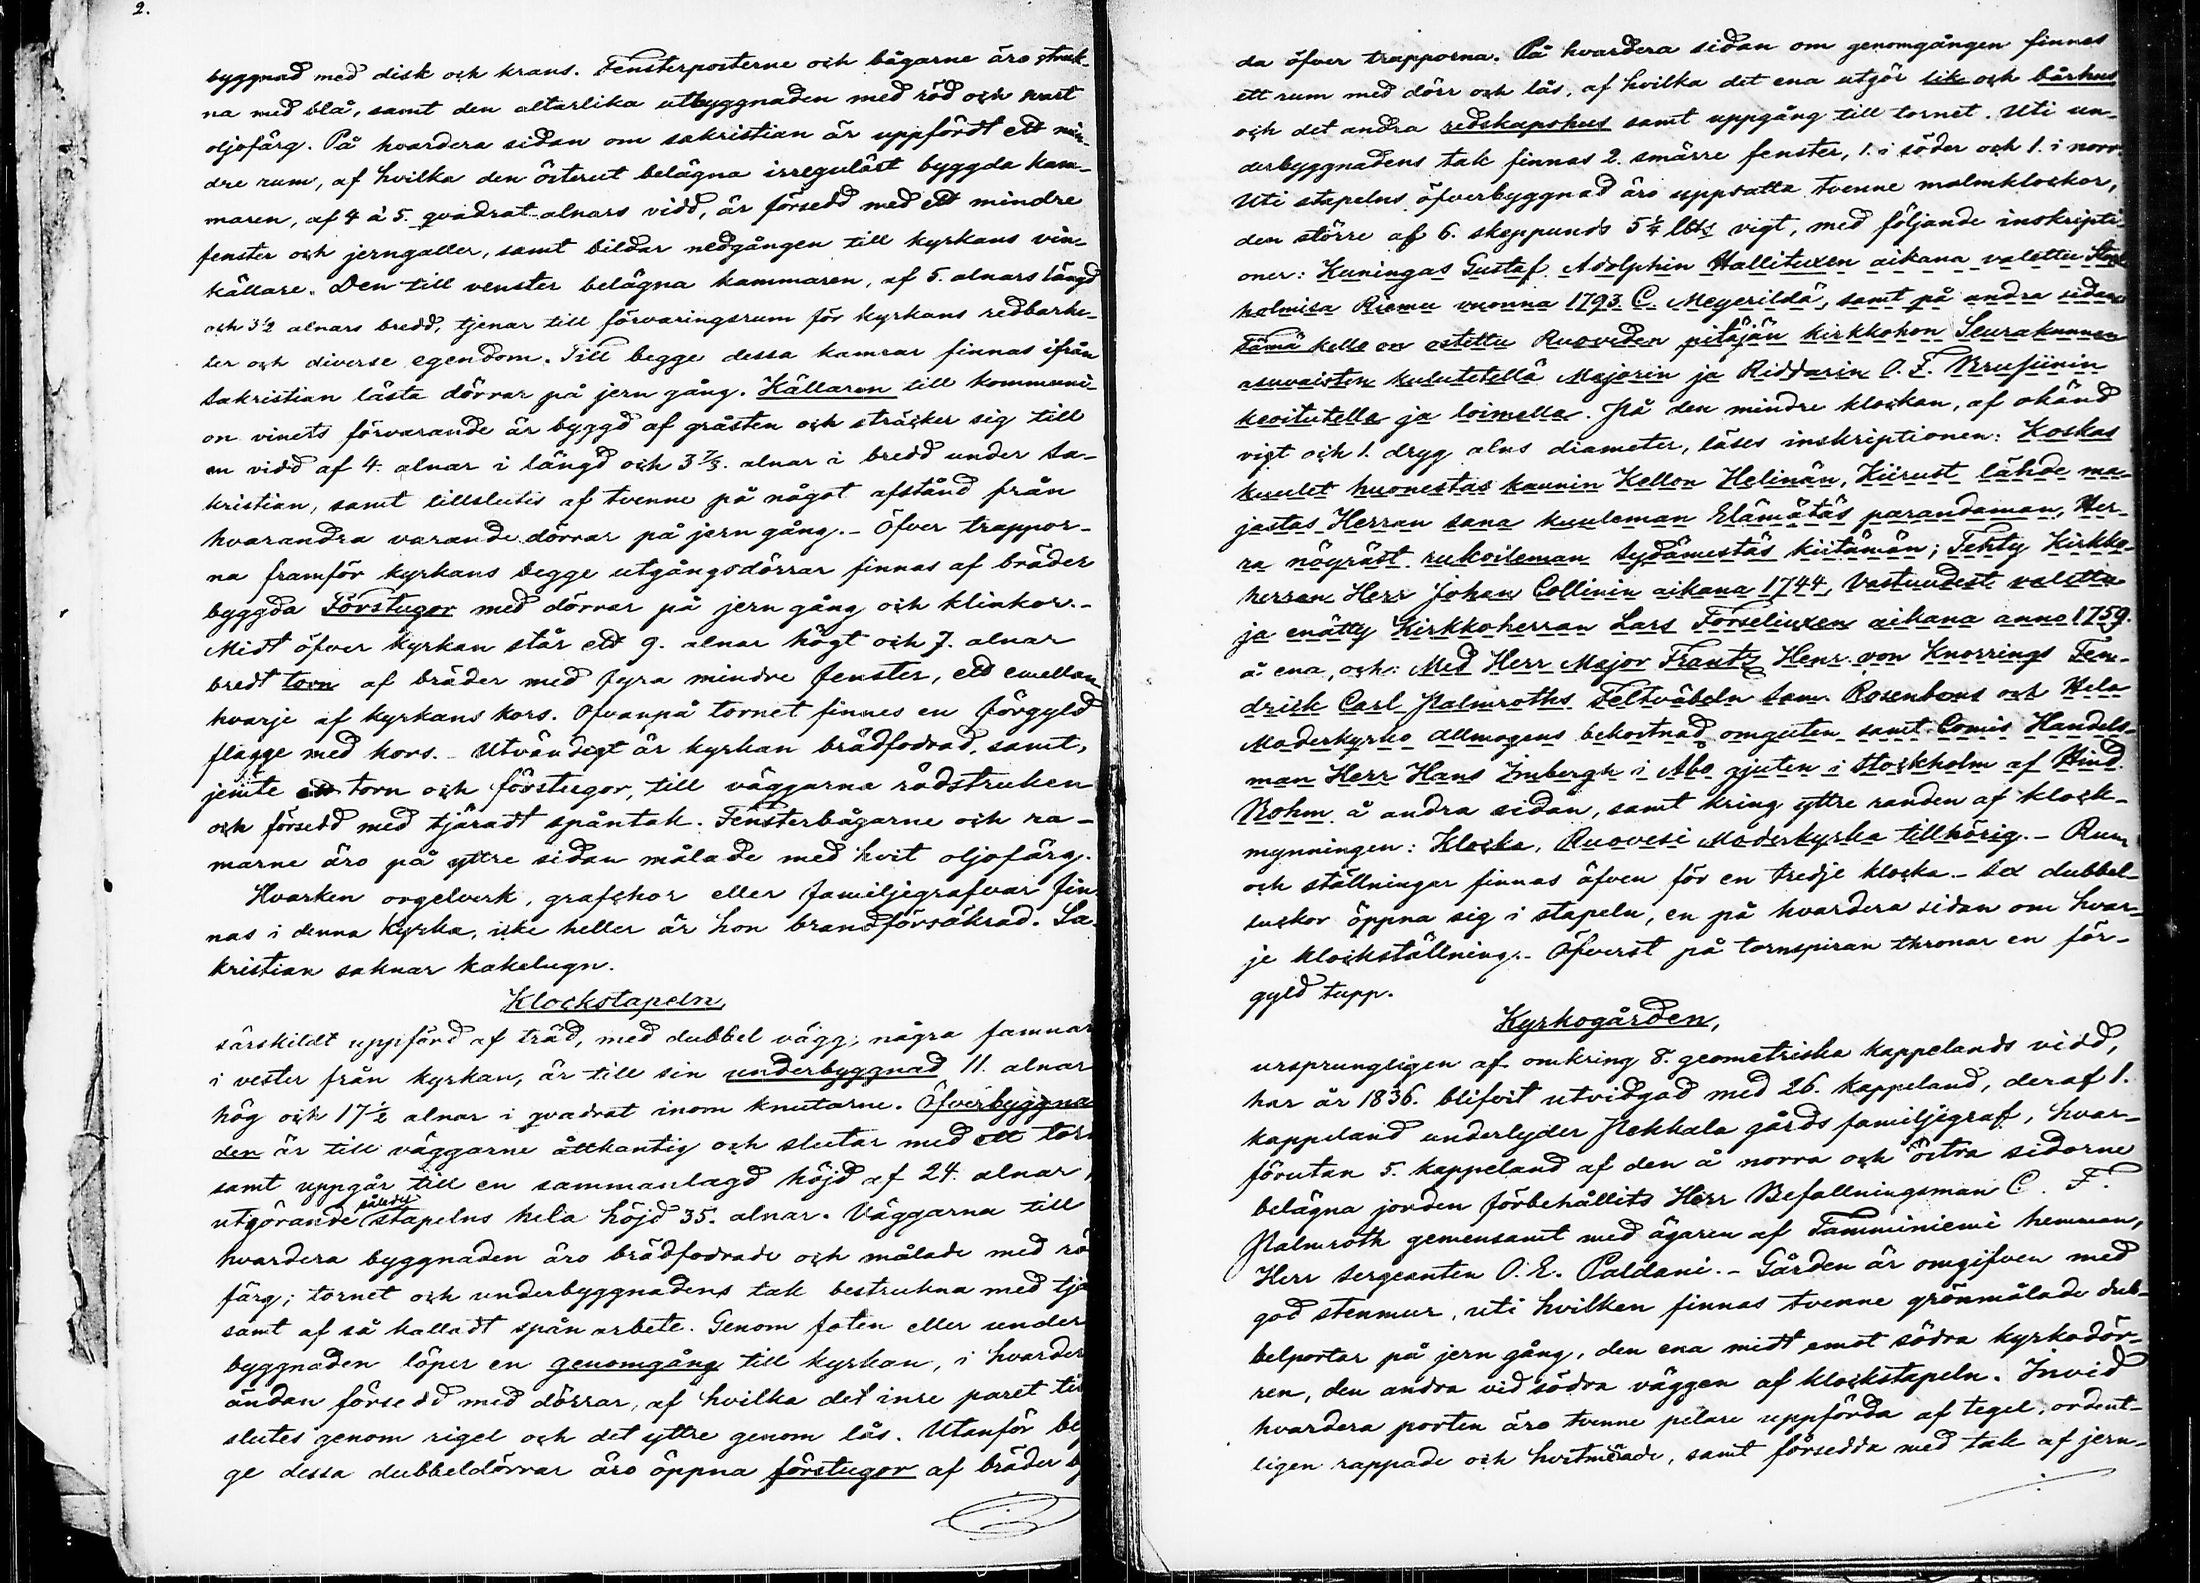 2.
byggnad med disk och krans. Fensterposterne och bågarne äro struk-
na med blå, samt den altarlika utbyggnaden med röd och svart
oljofärg. På hvardera sidan om sakristian är uppfördt ett min-
dre rum, af hvilka den österut belägna irreguliärt byggda kam-
maren, af 4 à 5. qvadrat-alnars vidd, är försedd med ett mindre
fenster och jerngaller, samt bildar nedgången till kyrkans vin-
källare. Den till venster belägna kammaren, af 5. alnars längd
och 3½ alnars bredd, tjenar till förvaringsrum för kyrkans redbarhe-
ter och diverse egendom. Till begge dessa kamrar finnas ifrån
Sakristian låsta dörrar på jern gång. Källaren till kommuni-
on vinets förvarande är byggd af gråsten och sträcker sig till
en vidd af 4. alnar i längd och 3 alnar i bredd under Sa-
kristian, samt tillslutes af tvenne på något afstånd från
hvarandra varande dörrar på jern gång.- Öfver trappor-
na framför kyrkans begge utgångsdörrar finnas af bräder
byggda Förstugor med dörrar på jern gång och klinkor.-
Midt öfver kyrkan står ett 9. alnar högt och 7. alnar
bredt torn af bräder med fyra mindre fenster, ett emellan
hvarje af kyrkans kors. Ofvanpå tornet finnes en förgyld
flagge med kors.- Utvändigt är kyrkan brädfodrad, samt,
jemte torn och förstugor, till väggarna rödstruken
och försedd med tjäradt spåntak. Fensterbågarne och ra-
marne äro på yttre sidan målade med hvit oljofärg.
Hvarken orgelverk, grafchor eller familjegrafvar fin-
nas i denna Kyrka, icke heller är hon brandförsäkrad. Sa-
kristian saknar kakelugn.
Klockstapeln,
särskildt uppförd af träd, med dubbel vägg, några famnar
i vester från kyrkan, är till sin underbyggnad 11. alnar
hög och 17½ alnar i qvadrat inom knutarne. Öfverbyggna
den är till väggarne åttkantig och slutar med ett torn
samt uppgår till en sammanlagd höjd af 24. alnar,
utgörande således stapelns hela höjd 35. alnar. Väggarna till
hvardera byggnaden äro brädfodrade och målade med rö
färg; tornet och underbyggnadens tak bestrukna med tjä
samt af så kalladt spån arbete. Genom foten eller under
byggnaden löper en genomgång till kyrkan, i hvarder
ändan försedd med dörrar, af hvilka det inre paret til
slutes genom rigel och det yttre genom lås. Utanför be
ge dessa dubbeldörrar äro öppna förstugor af bräder b
da öfver trapporna. På hvardera sidan om genomgången finnes
ett rum med dörr och lås, af hvilka det ena utgör lik och bårhus
och det andra redskapshus samt uppgång till tornet. Uti un-
derbyggnadens tak finnas 2. smärre fenster, 1. i söder och 1. i norr.
Uti stapelns öfverbyggnad äro uppsatta tvenne malmklockor,
den större af 6. skeppunds 5 vigt, med följande inskripti-
oner: Kuningas Gustaf Adolphin Hallituxen aikana valettu Stock
holmisa Riemu vuonna 1793. C. Meyerildä, samt på andra sidan
Tämä kello on ostettu Ruoveden pitäjän kirkkohon Seurakunnan
asuvaisten kulutetellä Majorin ja Riddarin O. F. Brusiinin
keoitutella ja loimella. På den mindre klockan, af okänd
vigt och 1. dryg alns diameter, läses inskriptionen: Koskas
kuulet huonestas kaunin Kellon Helinän, Kiirust lähde ma-
jastas Herran sana kuuleman Elämätäs parandaman, Her-
ra nöyräst rukoileman Sydämestäs kiitämän; Tehty Kirkko-
herran Herr Johan Collinin aikana 1744, Vastuudest valettu
ja enätty Kirkkoherran Lars Forseliuxen aikana anno 1759.
å ena, och: Med Herr Major Frantz Henr. von Knorrings Fen-
drick Carl Palmroths Feltväbeln Sam. Rosenboms och Hela
Moderkyrko allmogens bekostnad omguten samt Comis Handels-
man Herr Hans Imbergh i Åbo gjuten i Stockholm af Wind.
Rohm å andra sidan, samt kring yttre randen af klock-
mynningen: Klocka, Ruovesi Moderkyrka tillhörig.- Rum
och ställningar finnas äfven för en tredje klocka.- Sex dubbel-
luckor öppna sig i stapeln, en på hvardera sidan om hvar-
je klockställning.- Öfverst på tornspiran thronar en för-
gyld tupp.
Kyrkogården,
ursprungligen af omkring 8. geometriska kappelands vidd,
har år 1836. blifvit utvidgad med 26. kappeland, deraf 1.
kappeland underlyder Pekkala gårds familjegraf, hvar-
förutan 5. kappeland af den å norra och östra sidorne
belägna jorden förbehållits Herr Befallningsman C. F.
Palmroth gemensamt med ägaren af Tamminiemi hemman,
Herr Sergeanten O. E. Paldani.- Gården är omgifven med
god stenmur, uti hvilken finnas tvenne grönmålade dub-
belportar på jern gång, den ena midt emot södra kyrkodör-
ren, den andra vid södra väggen af klockstapeln. Invid
hvardera porten äro tvenne pelare uppförda af tegel, ordent-
ligen rappade och hvitmenade, samt försedda med tak af jern-